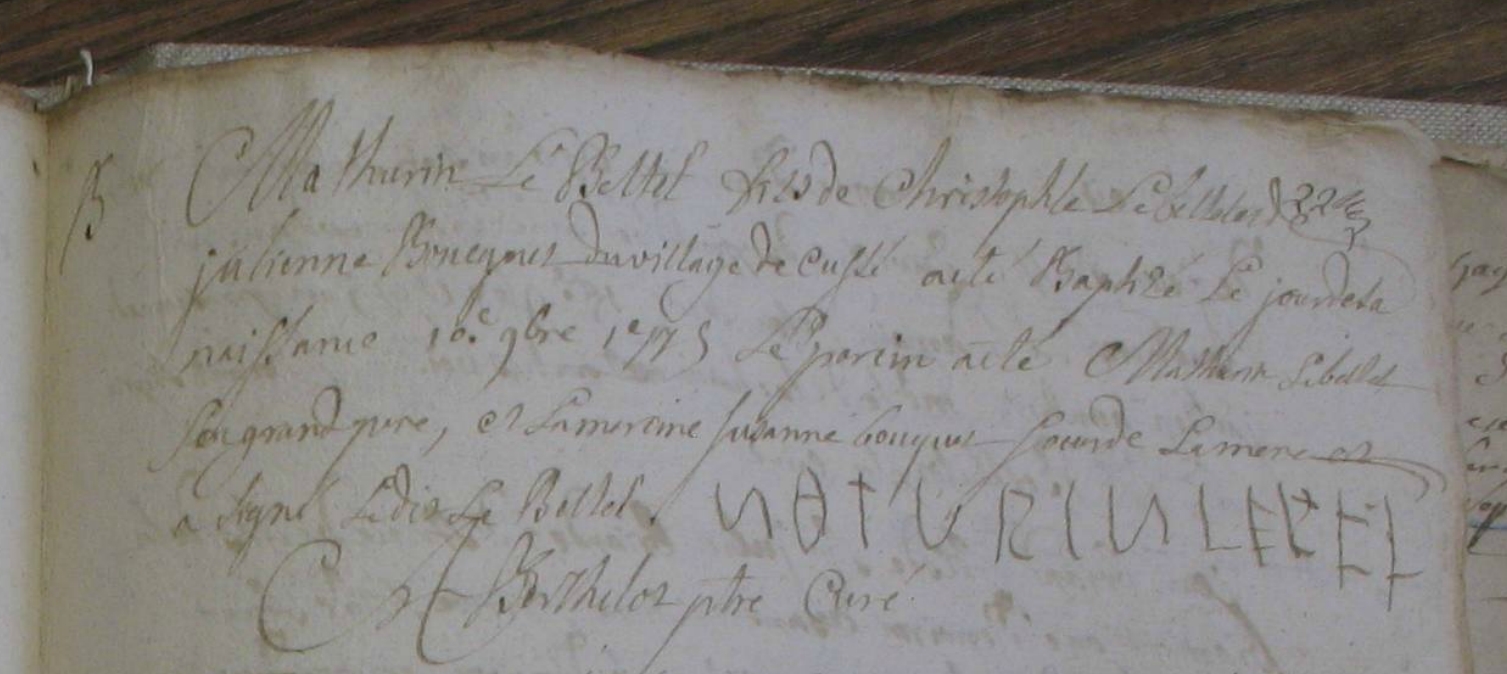 B Mathurin Le Bellet fils de Christophle Le bellet et de
julienne Boucquet du village de cussé a eté Baptizé Le jour de sa
naissance 10e 9bre Le parein a eté Mathurin Le bellet
son grand pere, et La mareine susanne bouquet sœur de La mere et
a signé Ledit Le Bellet. NATURIN LEBELET
Berthelot ptre Curé